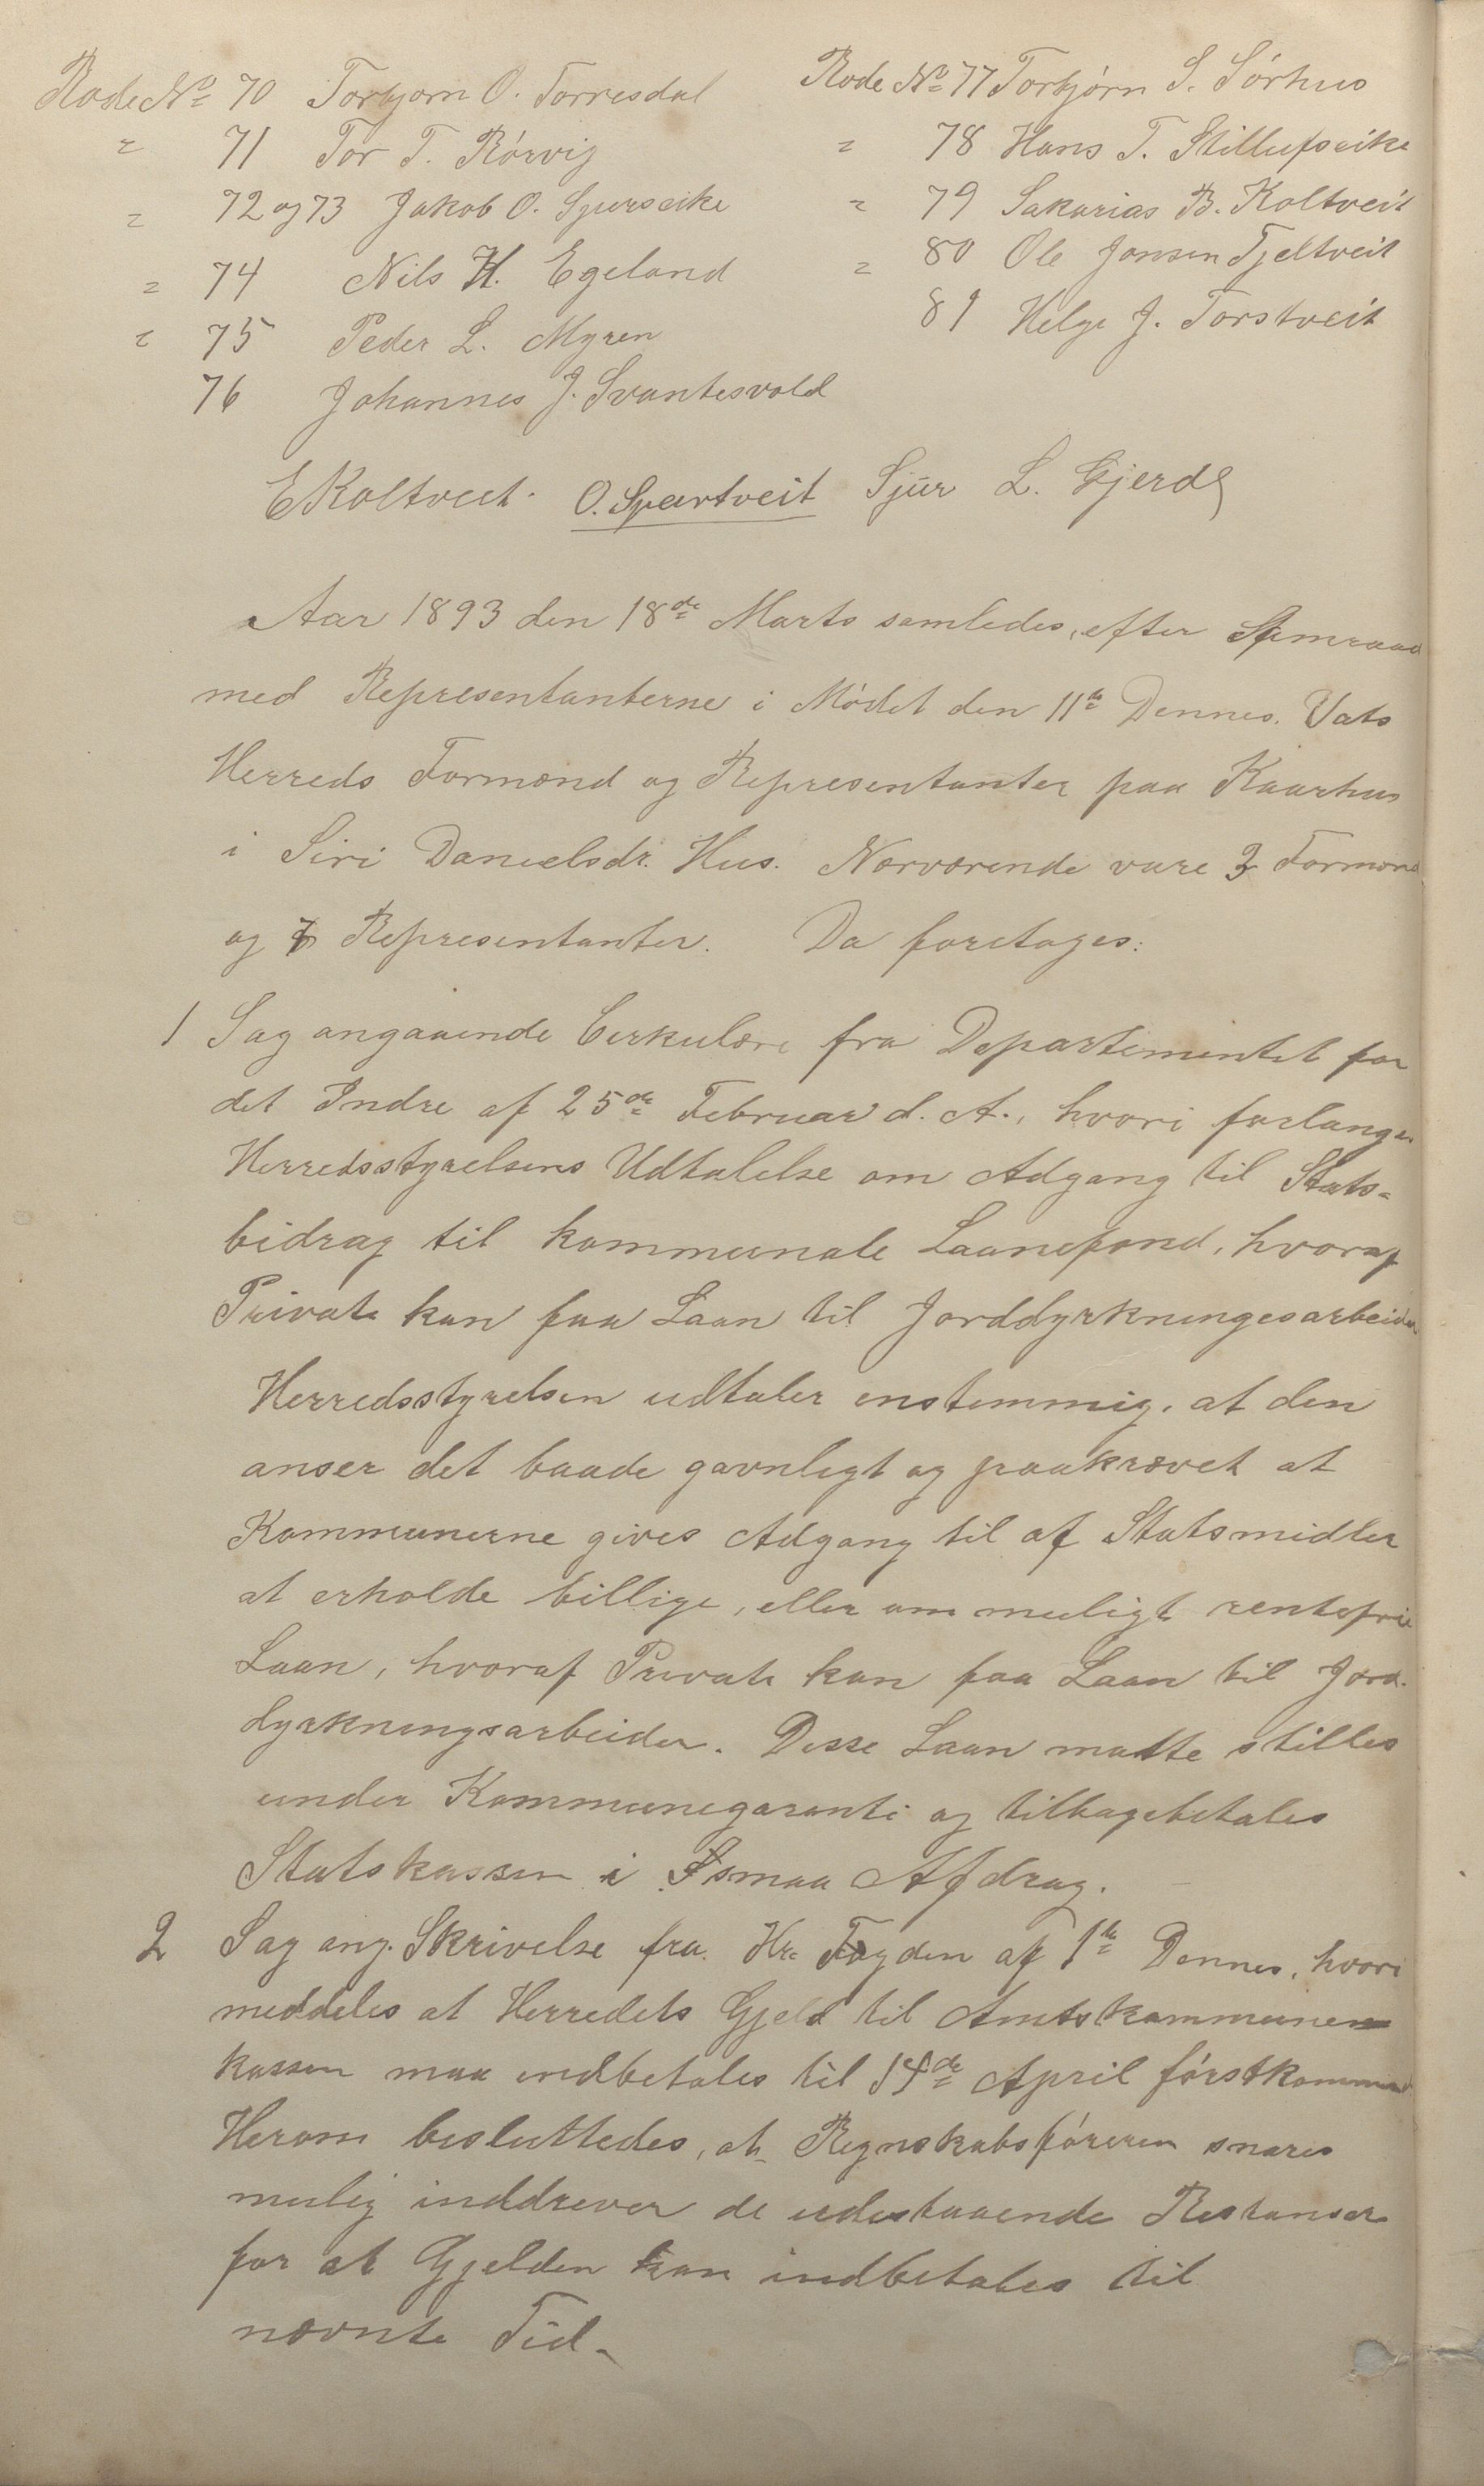 Rode No 70 Torbjorn O. Torresdal
" 71 Tor T. Rörvig
" 72 og 73 Jakob O. Spurseike
" 74 Nils H. Egeland
" 75 Peder L. Myren
76 Johannes J. Svantesvold
Rode No 77 Torbjörn S. Sörhus
" 78 Hans T. Stillufseike
" 79 Sakarias B. Koltveit
" 80 Ole Jonsen Fjeltveit
81 Helge J. Torstveit
E Koltveit. O. Spartveit Sjur L. Gjerde
Aar 1893 den 18de Marts samledes, efter Samraad
med Representanterne i Mödet den 11te Dennes. Vats
Herreds Formænd og Representanter paa Kaarhus
i Siri Danielsdr. Hus. Nærværende vare 3 Formænd
og 7 Representanter. Da foretoges:
1 Sag angaaende Cirkulære fra Departementet for
det Indre af 25de Februar d. A., hvori forlanges
Herredsstyrelsens Udtalelse om Adgang til Stats-
bidrag til kommunale Laanefond, hvoraf
Private kan faa Laan til Jorddyrkningesarbeider
Herredsstyrelsen udtaler enstemmig, at den
anser det baade gavnligt og paakrævet at
Kommunerne gives Adgang til af Statsmidler
at erholde billige, eller om muligt rentefrie
Laan, hvoraf Private kan faa Laan til Jord-
dyrkningsarbeider. Disse Laan maatte stilles
under Kommunegaranti og tilbagebetales
Statskassen i smaa Afdrag.
2 Sag ang. Skrivelse fra Hr. Fogden af 1te Dennes, hvori
meddeles at Herredets Gjeld til Amtskommune
kassen maa indbetales til 14de April förstkommend
Herom besluttedes, at Regnskabsföreren snares
mulig inddriver de udestaaende Restanser
for at Gjelden kan indbetales til
nævnte Tid.